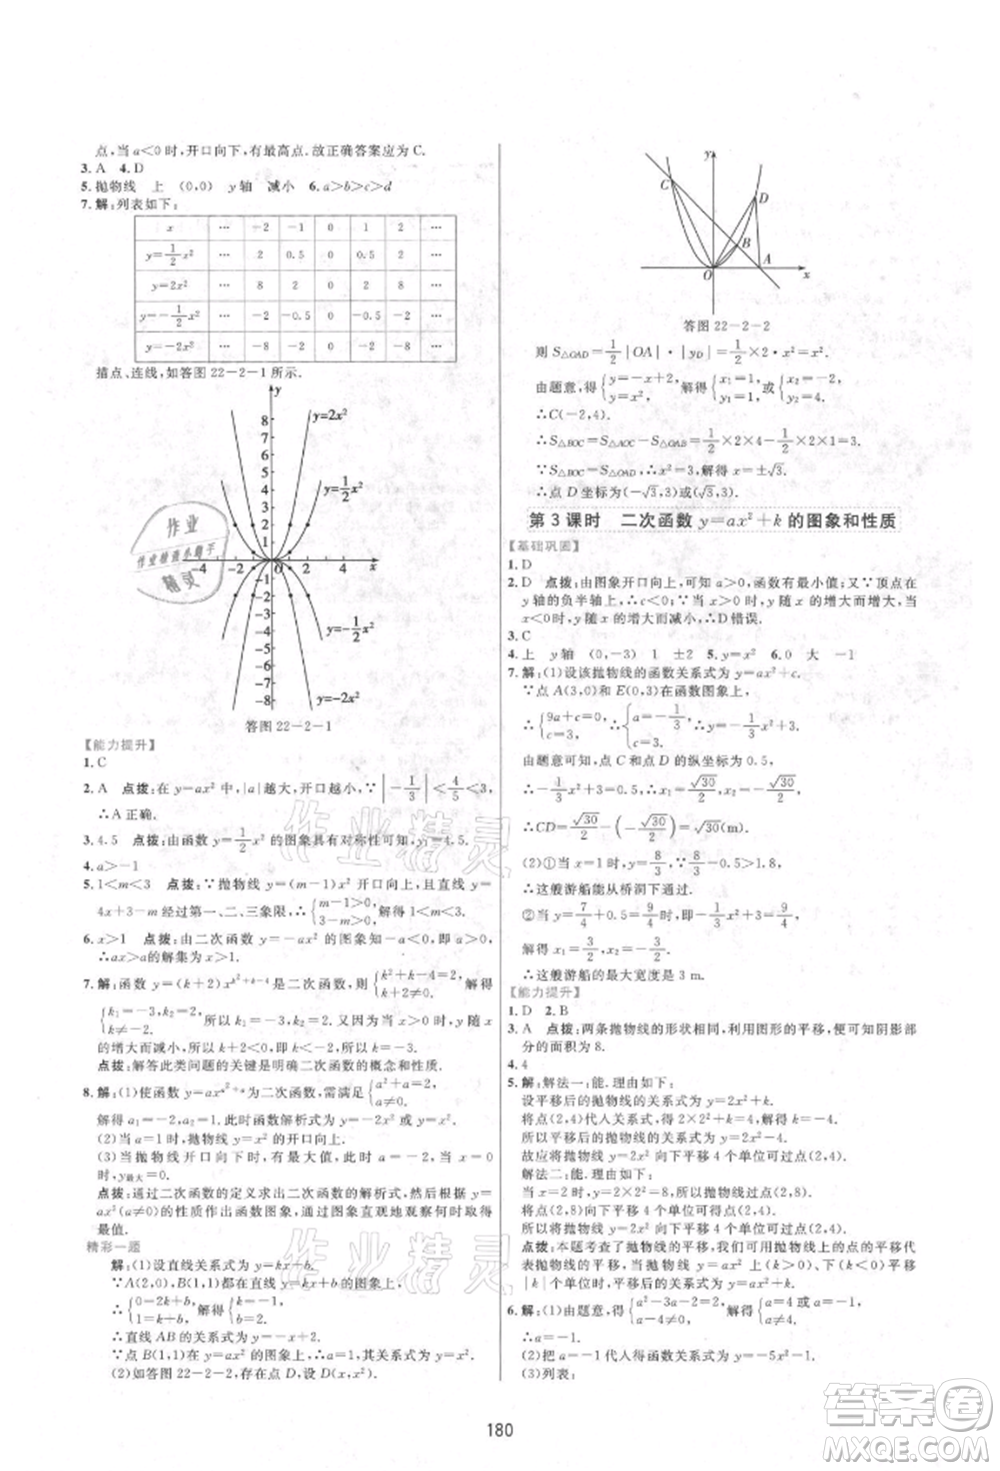 点,当 a<0 时,开口向下,有最高点.故正确答案应为 C.
3. A 4. D
5. 抛物线 上 (0,0) y 轴 减小 6. a>b>c>d
7. 解:列表如下:
x … -2 -1 0 1 2 …
y=1/2x² … 2 0.5 0 0.5 2 …
y=2x² … 8 2 0 2 8 …
y=-1/2x² … -2 -0.5 0 -0.5 -2 …
y=-2x² … -8 -2 0 -2 -8 …
描点、连线,如答图 22-2-1 所示.
y=2x²
y=1/2x²
y=-1/2x²
y=-2x²
答图 22-2-1
【能力提升】
1. C
2. A 点拨:在 y=ax² 中,|a|越大,开口越小,∵|-1/3|<4/5,
∴A 正确.
3. 4.5 点拨:由函数 y=1/2x² 的图象具有对称性可知,y₁=4.5.
4. a>-1
5. 1<m<3 点拨:∵抛物线 y=(m-1)x² 开口向上,且直线 y=
4x+3-m 经过第一、二、三象限,∴{m-1>0, 3-m>0. 解得 1<m<3.
6. x>1 点拨:由二次函数 y=-ax² 的图象知-a<0,∴a>0.
∴ax>a的解集为 x>1.
7. 解:函数 y=(k+2)x^(k²+k-4) 是关于 x 的二次函数,则{k²+k-4=2, k+2≠0.
{k₁=-3,k₂=2, k≠-2. 所以 k=-3 或 k=2. 又当 x>0 时,y 随 x
的增大而增大,所以开口向上,所以 k+2>0,所以 k=2.
点拨:解答此类问题的关键是明确二次函数的概念和性质.
8. 解:(1)使函数 y=ax^(a²+a) 是二次函数,需满足{a²+a=2, a≠0.
解得 a₁=-2,a₂=1.此时函数解析式为 y=-2x² 或 y=x².
(2)当 a=1 时,抛物线 y=x² 的开口向上.
(3)当抛物线开口向下时,有最大值,此时 a=-2,y=-2x²,
y最大=0.
点拨:通过二次函数的定义求出二次函数的解析式,利用 y=ax²
(a≠0)的性质作出函数图象,通过图象直观地观察何时取得
最值.
精彩一题
解:(1)设直线关系式为 y=kx+b.
∵A(2,0),B(1,1)都在直线 y=kx+b 的图象上,
∴{0=2k+b, 1=k+b. ∴{k=-1, b=2.
∴直线 AB 的关系式为 y=-x+2.
∵点 B(1,1)在 y=ax² 的图象上,∴a=1,其关系式为 y=x².
(2)如答图 22-2-2,存在点 D.设 D(x,x²),
y
C
D
B
O A x
答图 22-2-2
则 S△OAD=1/2|OA|·|yD|=1/2×2·x²=x².
由题意,得{y=-x+2, y=x². 解得{x₁=1, y₁=1; 或{x₂=-2, y₂=4.
∴C(-2,4).
∴S△BOC=S△AOC-S△OAB=1/2×2×4-1/2×2×1=3.
∵S△BOC=S△OAD,∴x²=3,解得 x=±√3.
∴点 D 坐标为(-√3,3)或(√3,3).
第 3 课时 二次函数 y=ax²+k 的图象和性质
【基础巩固】
1. D
2. D 点拨:由图象开口向上,可知 a>0,函数有最小值;又顶点在
y 轴的负半轴上,∴c<0;当 x>0 时,y 随 x 的增大而增大,当
x<0 时,y 随 x 的增大而减小,∴D错误.
3. C
4. 上 y轴 (0,-3) 1 ±2 5. y=x²+1 6. 0 大 -1
7. 解:(1)设该抛物线的函数关系式为 y=ax²+c.
∵点 A(3,0)和 E(0,3)在函数图象上,
∴{9a+c=0, c=3. ∴{a=-1/3, c=3. ∴y=-1/3x²+3.
由题意可知,点 C 和点 D 的纵坐标为 0.5,
∴-1/3x²+3=0.5,∴x₁=√30/2,x₂=-√30/2.
∴CD=√30/2-(-√30/2)=√30(m).
(2)①当 x=1 时,y=8/3,∵8/3-0.5>1.8,
∴这艘游船能从桥洞下通过.
②当 y=7/4+0.5=9/4时,9/4=-1/3x²+3,
解得 x₁=3/2,x₂=-3/2.
∴这艘游船的最大宽度是 3 m.
【能力提升】
1. D 2. B
3. A 点拨:两条抛物线的形状相同,利用图形的平移,便可知阴影部
分的面积为 8.
4. 4
5. 解:解法一:能.理由如下:
设平移后的抛物线的关系式为 y=2x²+k.
将点(2,4)代人关系式,得 2×2²+k=4,k=-4.
所以平移后的抛物线的关系式为 y=2x²-4.
故应将抛物线 y=2x² 向下平移 4 个单位可过点(2,4).
解法二:能.理由如下:
当 x=2 时,y=2×2²=8,故抛物线过点(2,8).
将点(2,8)向下平移 4 个单位可得点(2,4).
所以将抛物线 y=2x² 向下平移 4 个单位可过点(2,4).
点拨:本题考查了抛物线的平移,关键点的平移代
表抛物线的平移,y=ax²+k(a≠0)由 y=ax² 向上(下)平移
|k|个单位可得.
6. 解:(1)由题意,得{a²-3a-2=2, a+1≤0. 解得{a=4或a=-1, a≤-1.
∴a=-1.
(2)把 a=-1 代人得函数关系式为 y=-x²-1.
(3)列表:
180
答案圈
MXQE.COM
作业精灵
作业精灵